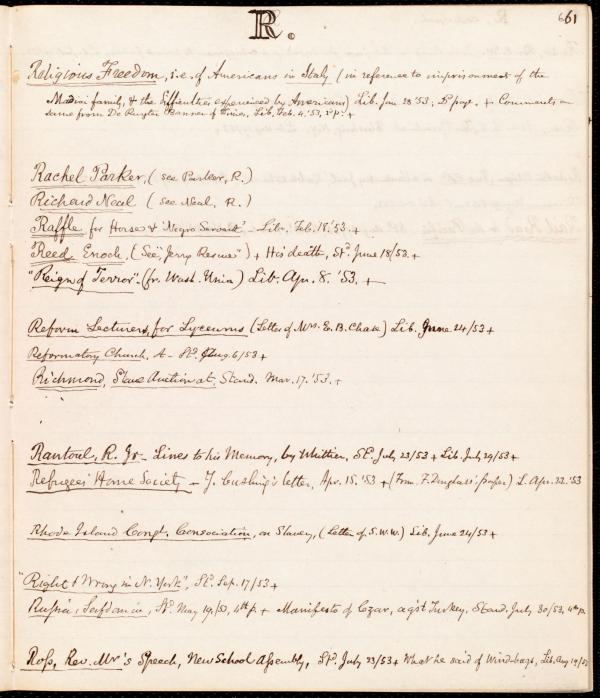 R.
61
Religious Freedom, i.e. of Americans in Italy (in reference to imprisonment of the
Madiai family, & the difficulties experienced by Americans) Lib. Jan 28 '53; page. + Comments on
same from De Ruyter Banner of Times, Lib. Feb. 4. '53, p. +
Rachel Parker, (see Parker, R.)
Richard Neal (see Neal, R.)
Raffle for Horse & "Negro Servant" Lib. Feb. 18. '53. +
Reed, Enoch, (See "Jerry Rescue") + His death, Sd. June 18/53. +
"Reign of Terror" - (fr. Wash. Union) Lib. Apr. 8. '53. +
Reform Lecturers, for Lyceums (Letter of Mrs. E. B. Chase) Lib. June 24/53 +
Reformatory Church, A - Sd. Aug. 6/53 +
Richmond, Slave Auction at, Stand. Mar. 17. '53. +
Rantoul, R. Jr - Lines to his Memory, by Whittier, Sd. July 23/53 + Lib. July 29/53 +
Refugees' Home Society - J. Cushing's letter, Apr. 15. '53 + (From F. Douglass' paper) L. Apr. 22. '53
Rhode Island Congl. Consociation, on Slavery, (Letter of S. W. W.) Lib. June 24/53 +
"Right & Wrong in N. York", Sd. Sep. 17/53 +
Russia, Serfdom in, Sd. May 19/53, 4th p. + Manifesto of Czar, agst Turkey, Stand. July 30/53, 4th p.
Ross, Rev. Mr's Speech, New School Assembly, Sd. July 23/53 + What he said of Wind-bags, Lib. Aug 19/53